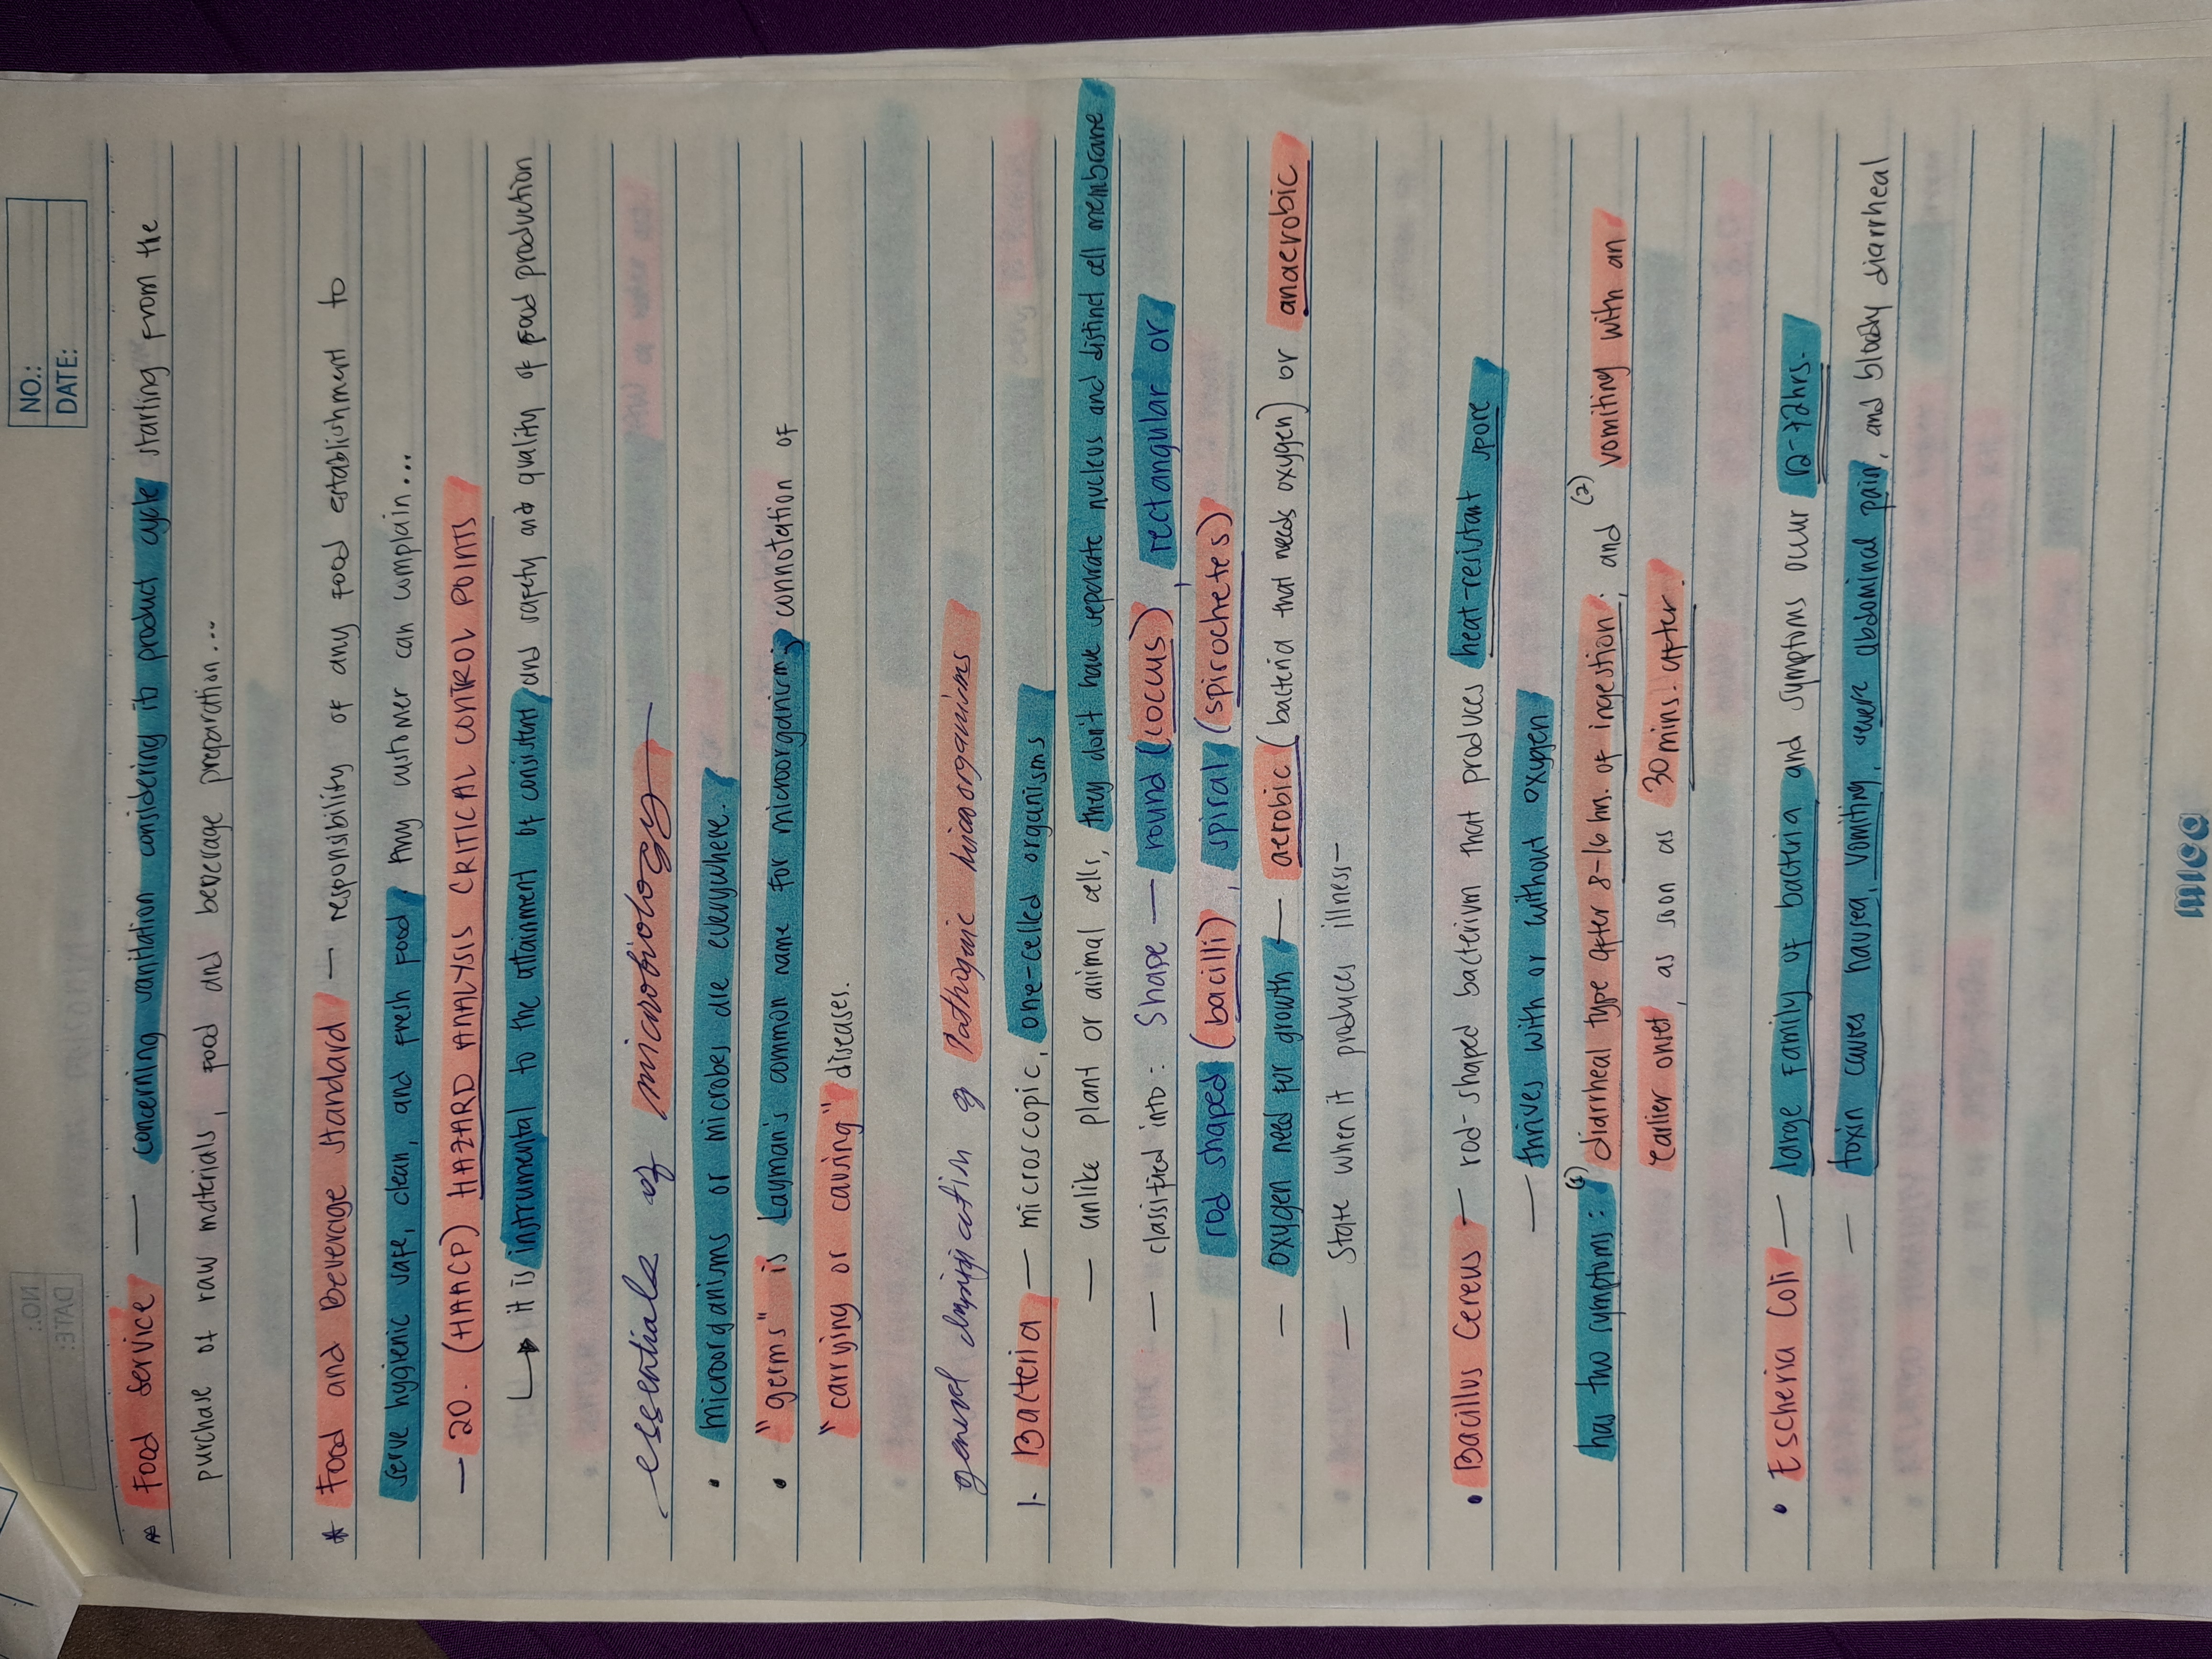 NO.:
DATE:
* Food Service — concerning sanitation considering its product cycle starting from the
purchase of raw materials, food and beverage preparation...
* Food and Beverage Standard — responsibility of any food establishment to
serve hygienic safe, clean, and fresh food. Any customer can complain...
— 20. (HAACP) HAZARD ANALYSIS CRITICAL CONTROL POINTS
↳ it is instrumental to the attainment of consistent and safety and quality of food production
essentials of microbiology
• microorganisms or microbes are everywhere.
• "germs" is Layman's common name for microorganism; connotation of
"carrying or causing" diseases.
general classification of Pathogenic Microorganisms
1. Bacteria — microscopic, one-celled organisms
— unlike plant or animal cells, they don't have separate nucleus and distinct cell membrane
— classified into: Shape — round (coccus), rectangular or
rod shaped (bacilli), spiral (spirochetes)
— oxygen need for growth — aerobic (bacteria that needs oxygen) or anaerobic
— State when it produces illness—
• Bacillus Cereus — rod-shaped bacterium that produces heat-resistant spore
— thrives with or without oxygen
has two symptoms: (1) diarrheal type after 8-16 hrs. of ingestion; and (2) vomiting with an
earlier onset, as soon as 30 mins. after.
• Escheria Coli — large family of bacteria and symptoms occur 12-72hrs.
— toxin causes nausea, vomiting, severe abdominal pain, and bloody diarrheal
mica